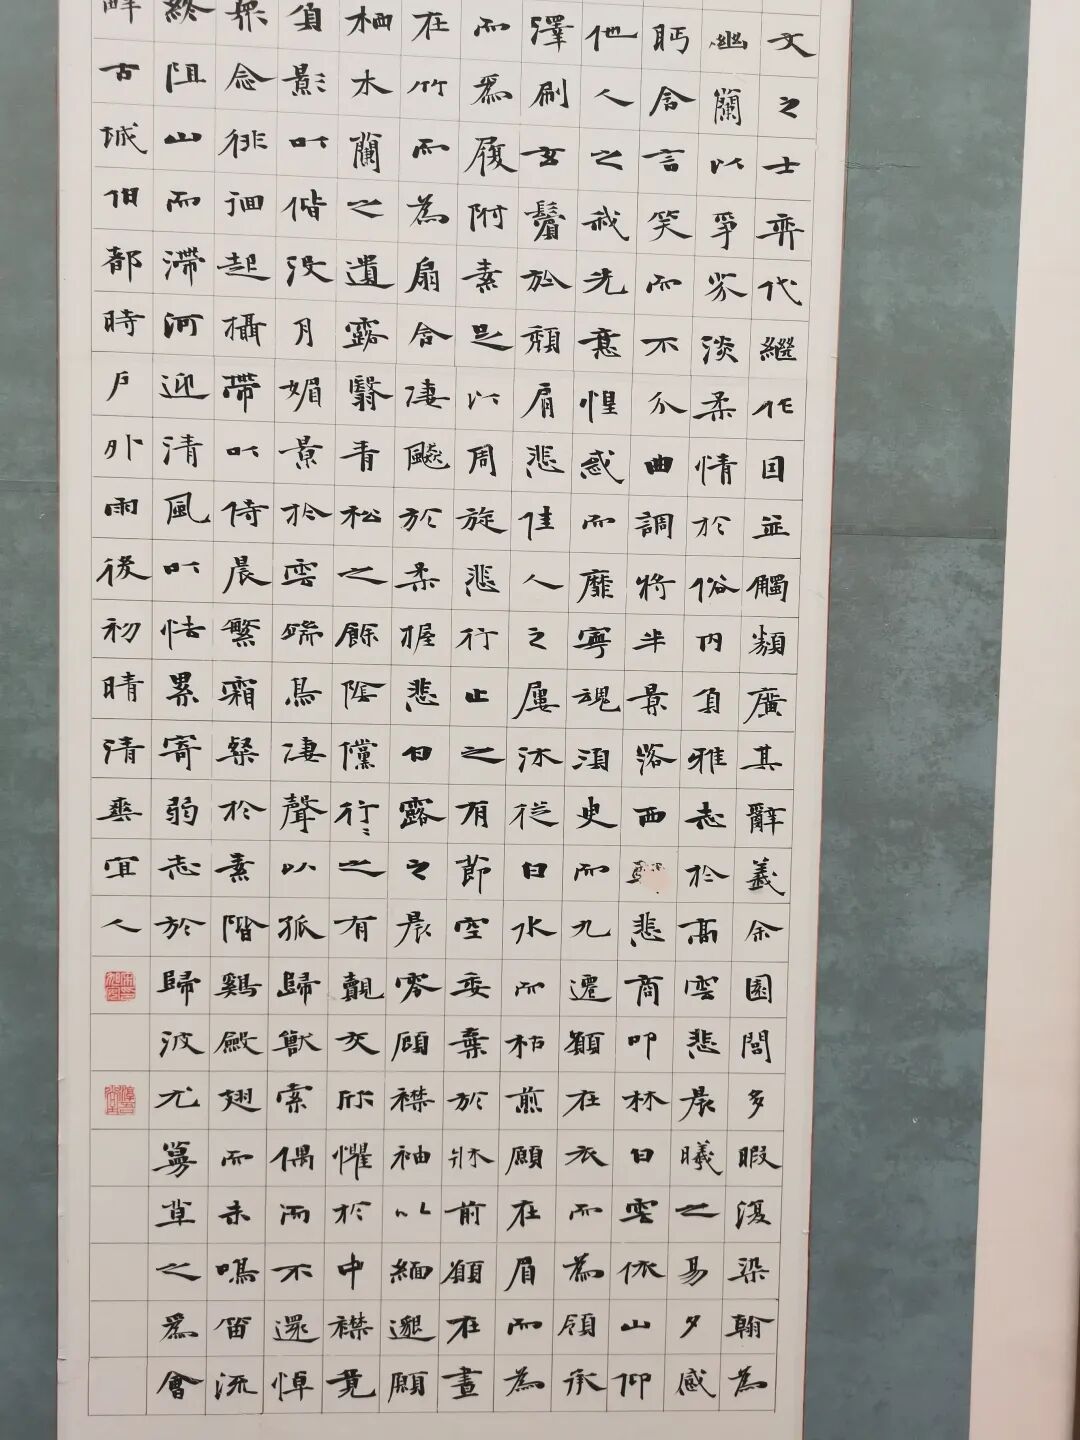 文之士弈代繼作因並觸類廣其辭義余園閭多暇復染翰為
幽蘭以爭芬淡柔情於俗內負雅志於高雲悲晨曦之易夕感
眄含言笑而不分曲調將半景落西軒悲商叩林白雲依山仰
他人之我先意惶惑而靡寧魂須臾而九遷願在衣而為領承
澤刷玄鬢於頹肩悲佳人之屢沐從白水而枯煎願在眉而為
而為履附素足以周旋悲行止之有節空委棄於牀前願在晝
在竹而為扇含凄飈於柔握悲白露之晨零顧襟袖以緬邈願
栖木蘭之遺露翳青松之餘陰儻行〻之有覿交欣懼於中襟竟
負影以偕沒月媚景於雲端鳥凄聲以孤歸獸索偶而不還悼
眾念徘徊起攝帶以侍晨繁霜粲於素階鷄斂翅而未鳴笛流
終阻山而滯河迎清風以怯累寄弱志於歸波尤蔓草之為會
古城伯都時戶外雨後初晴清爽宜人